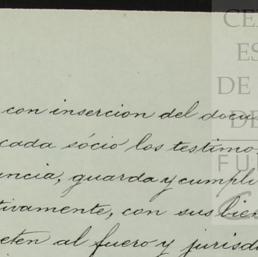 con insercion del docu
cada sócio los testimo
ncia, guarda y cumpli
tivamente, con sus bien
eten al fuero y jurisd
CE
ES
DE
DE
FU